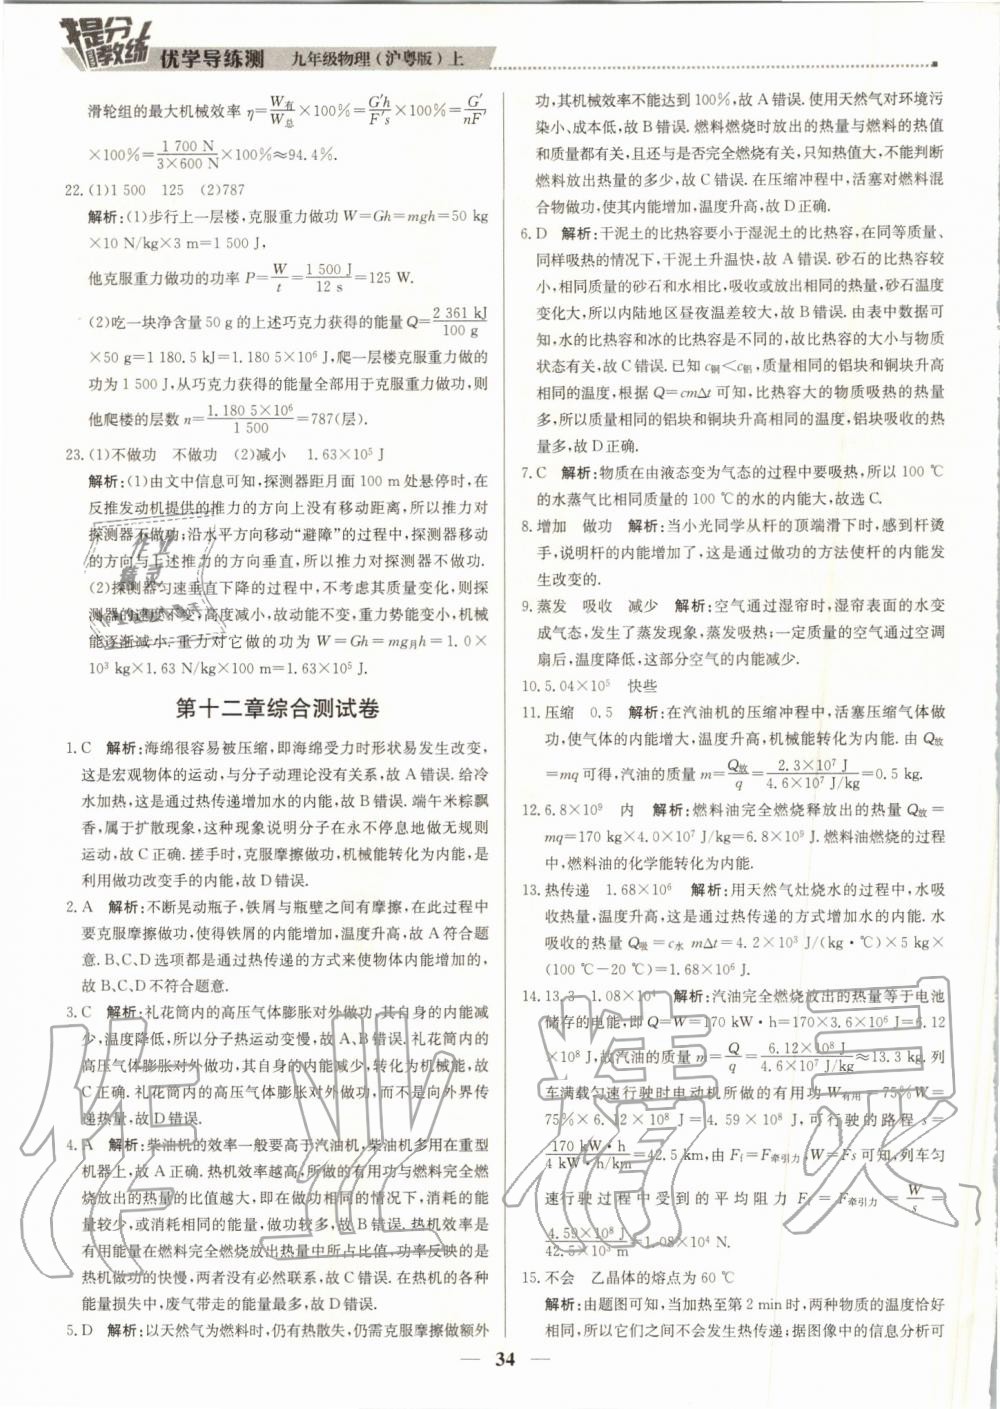 提分教练
优学导练测 九年级物理(沪粤版)上
滑轮组的最大机械效率 η=W有/W总×100%=G′h/F′s×100%=G′/nF′
×100%=1 700 N/3×600 N×100%≈94.4%.
22. (1)1 500 125 (2)787
解析:(1)步行上一层楼,克服重力做功 W=Gh=mgh=50 kg
×10 N/kg×3 m=1 500 J,
他克服重力做功的功率 P=W/t=1 500 J/12 s=125 W.
(2)吃一块净含量 50 g 的上述巧克力获得的能量 Q=2 361 kJ/100 g
×50 g=1 180.5 kJ=1.180 5×10⁶ J,爬一层楼克服重力做的
功为 1 500 J,从巧克力获得的能量全部用于克服重力做功,则
他爬楼的层数 n=1.180 5×10⁶/1 500=787(层).
23. (1)不做功 不做功 (2)减小 1.63×10⁵ J
解析:(1)由文中信息可知,探测器距月面 100 m 处悬停时,在
反推发动机提供的推力的方向上没有移动距离,所以推力对
探测器不做功;沿水平方向移动“避障”的过程中,探测器移动
的方向与上述推力的方向垂直,所以推力对探测器不做功.
(2)探测器匀速垂直下降的过程中,不考虑其质量变化,则探
测器的速度不变,高度减小,故动能不变,重力势能变小,机械
能逐渐减小.重力对它做的功为 W=Gh=mg月h=1.0×
10³ kg×1.63 N/kg×100 m=1.63×10⁵ J.
第十二章综合测试卷
1. C 解析:海绵很容易被压缩,即海绵受力时形状易发生改变,
这是宏观物体的运动,与分子动理论没有关系,故 A 错误.给冷
水加热,这是通过热传递增加水的内能,故 B 错误.端午米粽飘
香,属于扩散现象,这种现象说明分子在永不停息地做无规则
运动,故 C 正确.搓手时,克服摩擦做功,机械能转化为内能,是
利用做功改变手的内能,故 D 错误.
2. A 解析:不断晃动瓶子,铁屑与瓶壁之间有摩擦,在此过程中
要克服摩擦做功,使得铁屑的内能增加,温度升高,故 A 符合题
意.B、C、D 选项都是通过热传递的方式来使物体内能增加的,
故 B、C、D 不符合题意.
3. C 解析:礼花筒内的高压气体膨胀对外做功,其自身的内能减
少,温度降低,所以分子热运动变慢,故 A、B 错误.礼花筒内的
高压气体膨胀对外做功,其自身的内能减少,转化为机械能,故
C 正确.礼花筒内的高压气体膨胀对外做功,而不是向外界传
递热量,故 D 错误.
4. A 解析:柴油机的效率一般要高于汽油机,柴油机多用在重型
机器上,故 A 正确.热机效率越高,所做的有用功与燃料完全燃
烧放出的热量的比值越大,即在做功相同的情况下,消耗的能
量较少,或消耗相同的能量,做功较多,故 B 错误.热机效率是
有用功的能量在燃料完全燃烧放出热量中所占比值,功率反映的是
热机做功的快慢,两者没有必然联系,故 C 错误.在热机的各种
能量损失中,废气带走的能量最多,故 D 错误.
5. D 解析:以天然气为燃料时,仍有热散失,仍需克服摩擦做额外
功,其机械效率不能达到 100%,故 A 错误.使用天然气对环境污
染小、成本低,故 B 错误.燃料燃烧时放出的热量与燃料的热值
和质量都有关,且还与是否完全燃烧有关,只知热值大,不能判断
燃料放出热量的多少,故 C 错误.在压缩冲程中,活塞对燃料混
合物做功,使其内能增加,温度升高,故 D 正确.
6. D 解析:干泥土的比热容要小于湿泥土的比热容,在同等质量、
同样吸热的情况下,干泥土升温快,故 A 错误.砂石的比热容较
小,相同质量的砂石和水相比,吸收或放出相同的热量,砂石温度
变化大,所以内陆地区昼夜温差较大,故 B 错误.由表中数据可
知,水的比热容和冰的比热容是不同的,故比热容的大小与物质
状态有关,故 C 错误.已知 c铜<c铝,质量相同的铝块和铜块升高
相同的温度,根据 Q=cmΔt 可知,比热容大的物质吸热的热量
多,所以质量相同的铝块和铜块升高相同的温度,铝块吸收的热
量多,故 D 正确.
7. C 解析:物质在由液态变为气态的过程中要吸热,所以 100 ℃
的水蒸气比相同质量的 100 ℃的水的内能大,故选 C.
8. 增加 做功 解析:当小光同学从杆的顶端滑下时,感到杆烫
手,说明杆的内能增加了,这是通过做功的方法使杆的内能发
生改变的.
9. 蒸发 吸收 减少 解析:空气通过湿帘时,湿帘表面的水变
成气态,发生了蒸发现象,蒸发吸热;一定质量的空气通过空调
扇后,温度降低,这部分空气的内能减少.
10. 5.04×10⁵ 快些
11. 压缩 0.5 解析:在汽油机的压缩冲程中,活塞压缩气体做
功,使气体的内能增大,温度升高,机械能转化为内能.由 Q放
=mq 可得,汽油的质量 m=Q放/q=2.3×10⁷ J/4.6×10⁷ J/kg=0.5 kg.
12. 6.8×10⁹ 内 解析:燃料油完全燃烧释放出的热量 Q放=
mq=170 kg×4.0×10⁷ J/kg=6.8×10⁹ J.燃料油燃烧的过程
中,燃料油的化学能转化为内能.
13. 热传递 1.68×10⁶ 解析:用天然气灶烧水的过程中,水吸
收热量,温度升高,这是通过热传递的方式增加水的内能.水
吸收的热量 Q吸=c水 mΔt=4.2×10³ J/(kg·℃)×5 kg×
(100 ℃-20 ℃)=1.68×10⁶ J.
14. 13.3 1.08×10⁴ 解析:汽油完全燃烧放出的热量等于电池
储存的电能,即 Q=W=170 kW·h=170×3.6×10⁶ J=6.12
×10⁸ J,故汽油的质量 m=Q/q=6.12×10⁸ J/4.6×10⁷ J/kg≈13.3 kg.列
车满载匀速行驶时电动机所做的有用功 W有用=75%W=
75%×6.12×10⁸ J=4.59×10⁸ J,可行驶的路程 s=
170 kW·h/4 kW·h/km=42.5 km,由 Ff=F牵引力,W=Fs 可知,列车匀
速行驶过程中受到的平均阻力 Ff=F牵引力=W/s=
4.59×10⁸ J/42.5×10³ m=1.08×10⁴ N.
15. 不会 乙晶体的熔点为 60 ℃
解析:由题图可知,当加热至第 2 min 时,两种物质的温度恰好
相同,所以它们之间不会发生热传递;据图像中的信息分析可
— 34 —
作业精灵